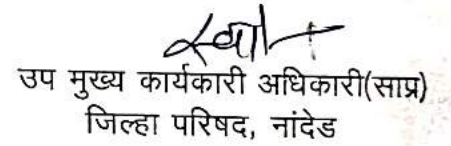 उप मुख्य कार्यकारी अधिकारी(साप्र)
जिल्हा परिषद, नांदेड